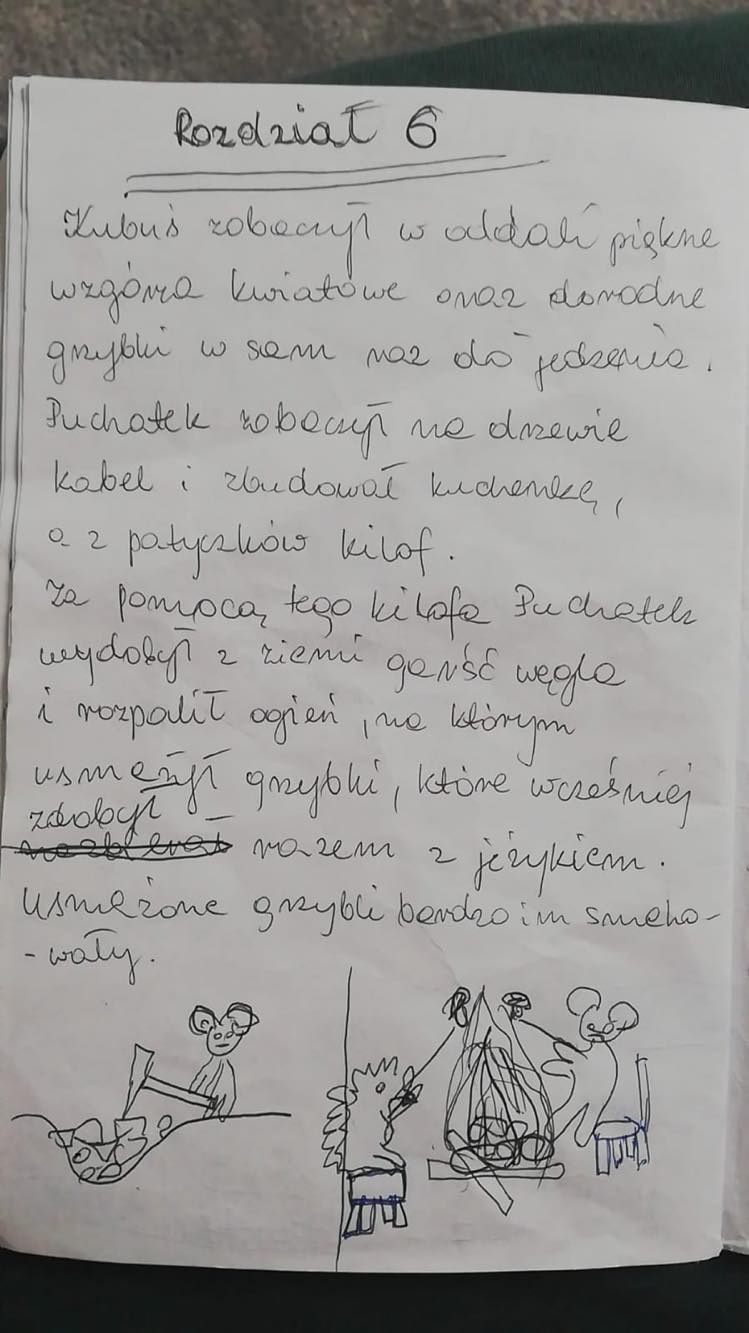 Rozdział 6
Kubuś zobaczył w oddali piękne
wzgórza kwiatowe oraz dorodne
grzybki w sam raz do jedzenia.
Puchatek zobaczył na drzewie
kabel i zbudował kuchenkę,
a z patyczków kilof.
Za pomocą tego kilofa Puchatek
wydobył z ziemi garść węgla
i rozpalił ogień, na którym
usmażył grzybki, które wcześniej
zdrobył
razem z jeżykiem.
Usmażone grzybki bardzo im smako-
-wały.